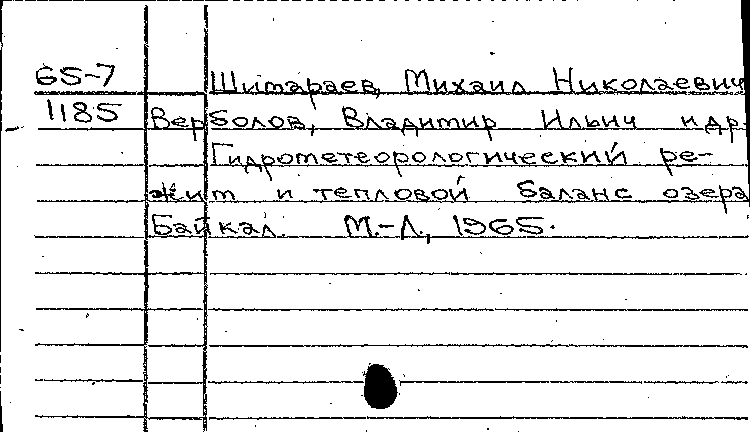 65-7 Шимараев, Михаил Николаевич
1185 Верболов, Владимир Ильич и др.
Гидрометеорологический ре-
жим и тепловой баланс озера
Байкал. М.-Л., 1965.